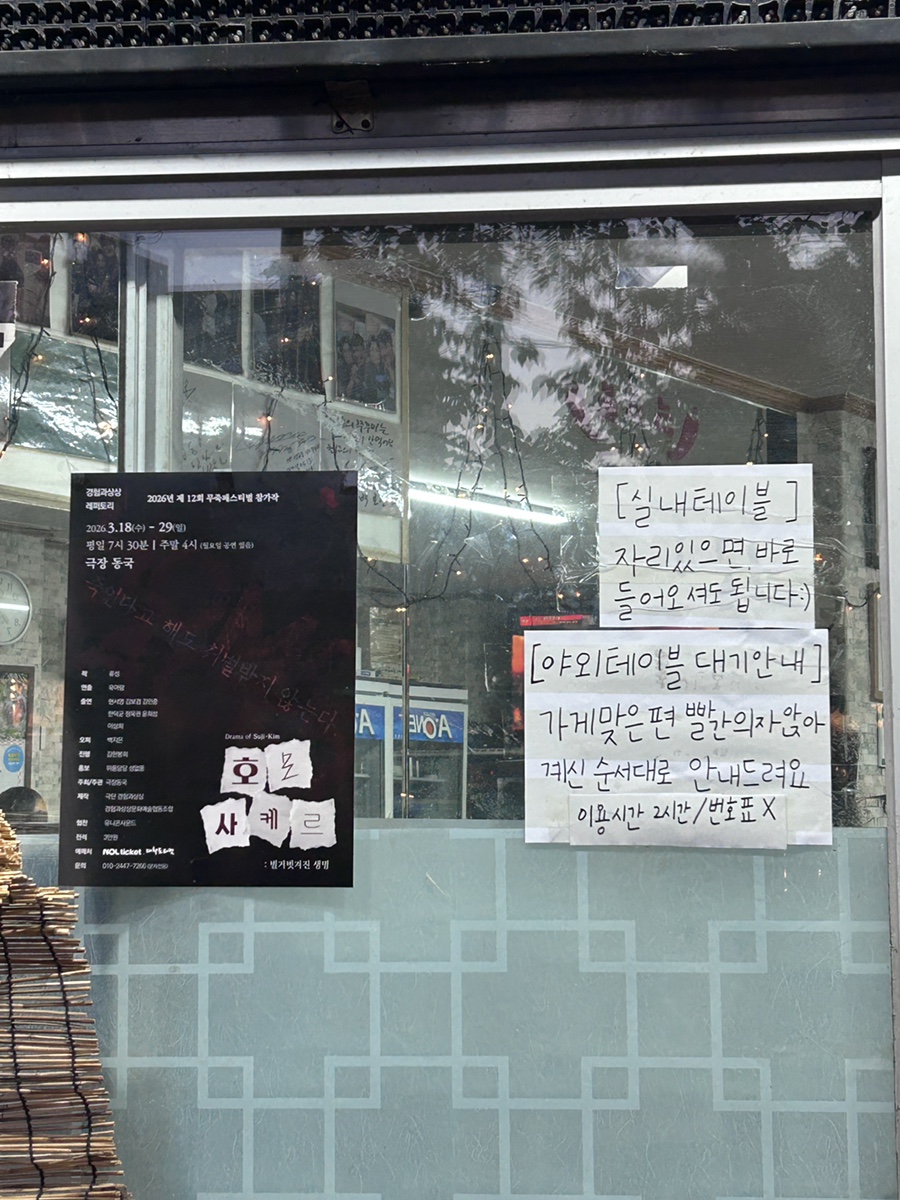 경험과상상
레퍼토리
2026년 제 12회 무죽페스티벌 참가작
2026 3.18(수) - 29(일)
평일 7시 30분 | 주말 4시 (월요일 공연 없음)
극장 동국
죽인다고 해도 처벌받지 않는다.
작
연출
출연
오퍼
진행
홍보
주최/주관 극장동국
제작 극단 경험과상상
경험과상상문화예술협동조합
협찬
전석 3만원
예매처 NOL ticket
문의 010-2447-7260
Drama of Suji-Kim
호모
사케르
: 벌거벗겨진 생명
[실내테이블]
자리있으면 바로
들어오셔도 됩니다:)
[야외테이블 대기안내]
가게맞은편 빨간의자앉아
계신 순서대로 안내드려요
이용시간 2시간/번호표 X